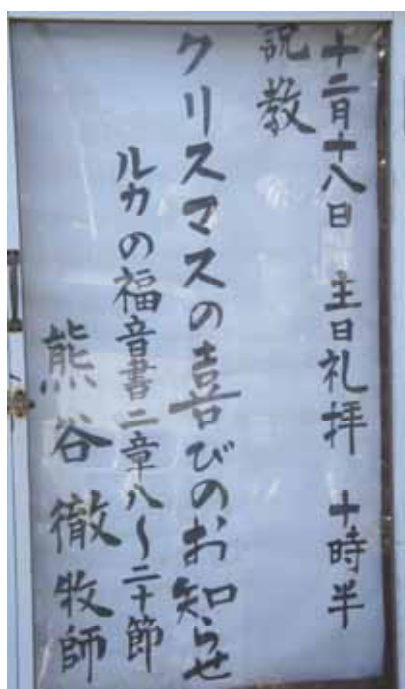 十二月十八日 主日礼拝 十時半
説教
クリスマスの喜びのお知らせ
ルカの福音書二章八～二十節
熊谷徹牧師